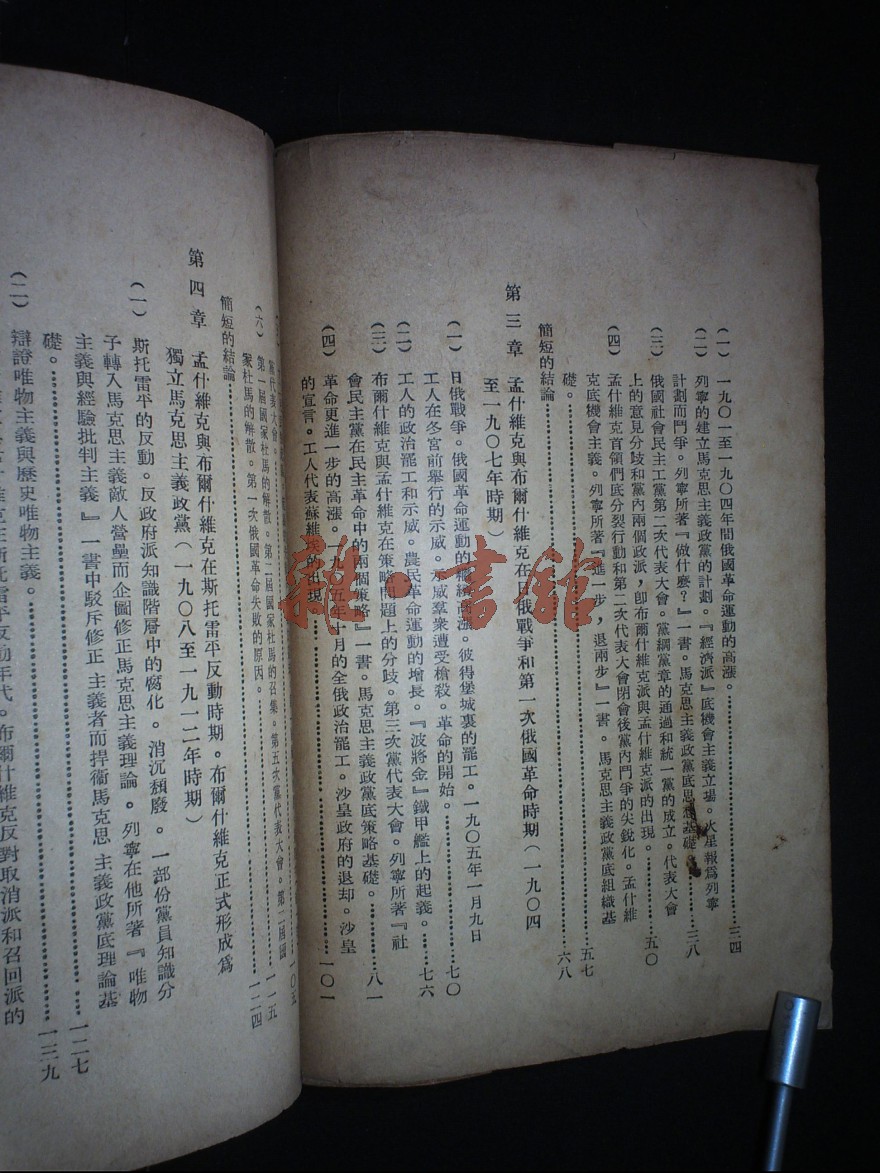 (一) 一九〇一至一九〇四年間俄國革命運動的高漲。……三四
(二) 列寧的建立馬克思主義政黨的計劃。『經濟派』底機會主義立場。火星報為列寧
計劃而鬥爭。列寧所著『做什麼？』一書。馬克思主義政黨底思想基礎。……三八
(三) 俄國社會民主工黨第二次代表大會。黨綱黨章的通過和統一黨的成立。代表大會
上的意見分歧與黨內兩個政派，卽布爾什維克派與孟什維克派的出現。……五〇
(四) 孟什維克首領們底分裂行動和第二次代表大會閉會後黨內鬥爭的尖銳化。孟什維
克底機會主義。列寧所著『進一步，退兩步』一書。馬克思主義政黨底組織基
礎。……五七
簡短的結論……六八
第三章 孟什維克與布爾什維克在日俄戰爭和第一次俄國革命時期(一九〇四
至一九〇七年時期)
(一) 日俄戰爭。俄國革命運動的繼續高漲。彼得堡城裏的罷工。一九〇五年一月九日
工人在冬宮前舉行的示威。示威羣衆遭受槍殺。革命的開始。……七〇
(二) 工人的政治罷工和示威。農民革命運動的增長。『波將金』鐵甲艦上的起義。……七六
(三) 布爾什維克與孟什維克在策略問題上的分歧。第三次黨代表大會。列寧所著『社
會民主黨在民主革命中的兩個策略』一書。馬克思主義政黨底策略基礎。……八一
(四) 革命更進一步的高漲。一九〇五年十月的全俄政治罷工。沙皇政府的退却。沙皇
的宣言。工人代表蘇維埃的出現。……一〇一
雜·書館
黨代表大會。……一〇五
(六) 第一屆國家杜馬的解散。第二屆國家杜馬的召集。第五次黨代表大會。第二屆國
家杜馬的解散。第一次俄國革命失敗的原因。……一一五
簡短的結論……一二四
第四章 孟什維克與布爾什維克在斯托雷平反動時期。布爾什維克正式形成為
獨立馬克思主義政黨(一九〇八至一九一二年時期)
(一) 斯托雷平的反動。反政府派知識階層中的腐化。消沉頹廢。一部份黨員知識分
子轉入馬克思主義敵人營壘而企圖修正馬克思主義理論。列寧在他所著『唯物
主義與經驗批判主義』一書中駁斥修正主義者而捍衛馬克思主義政黨底理論基
礎。……一二七
(二) 辯證唯物主義與歷史唯物主義。……一三九
維克在斯托雷平反動年代。布爾什維克反對取消派和召回派的